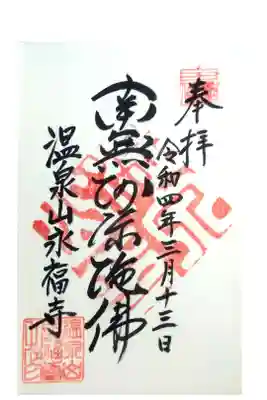 奉拝
令和四年三月十三日
南無阿弥陀佛
温泉山永福寺